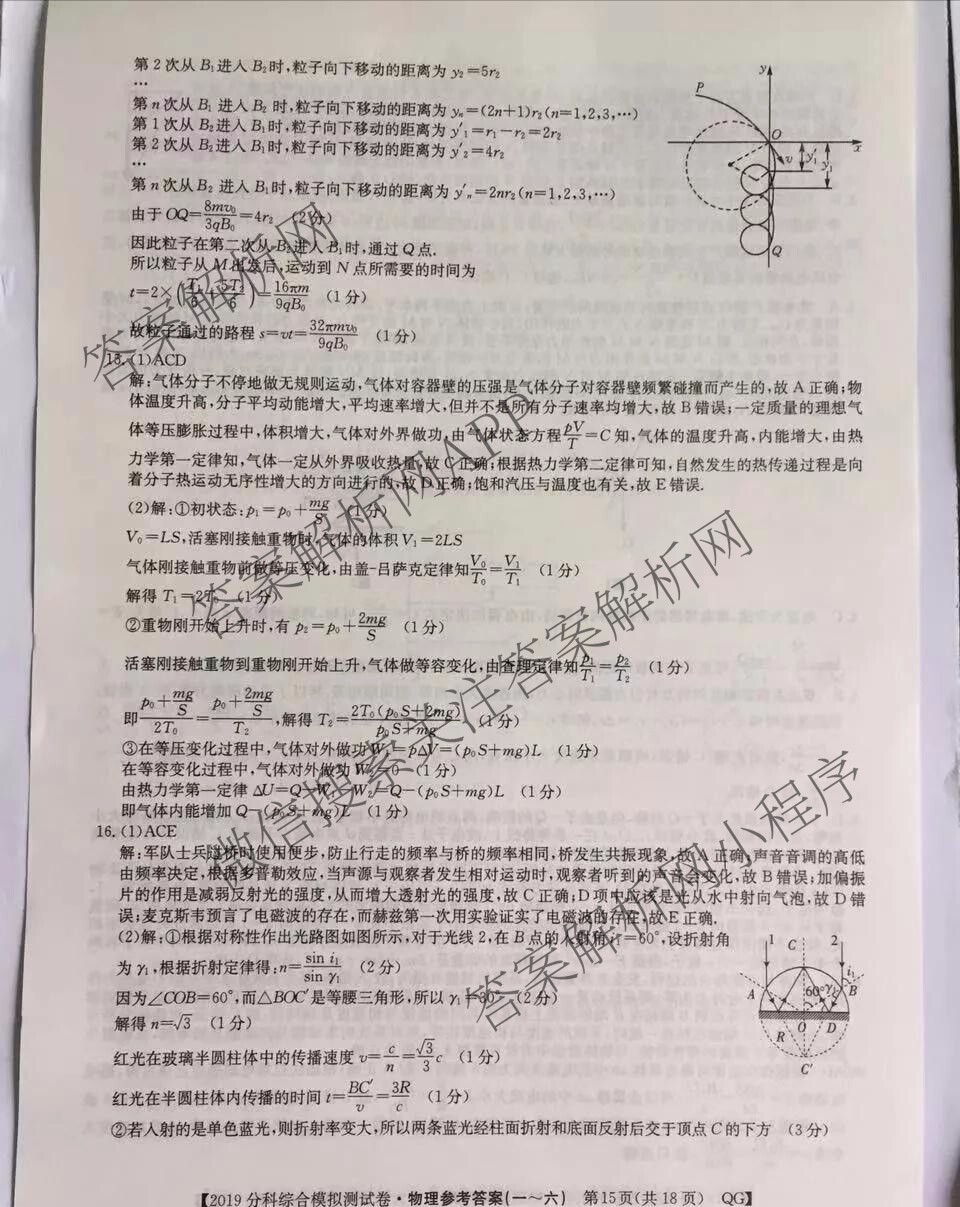 第2次从B₁进入B₂时,粒子向下移动的距离为y₂=5r₂
…
第n次从B₁进入B₂时,粒子向下移动的距离为yₙ=(2n+1)r₂(n=1,2,3,…)
第1次从B₂进入B₁时,粒子向下移动的距离为y′₁=r₁-r₂=2r₂
第2次从B₂进入B₁时,粒子向下移动的距离为y′₂=4r₂
…
第n次从B₂进入B₁时,粒子向下移动的距离为y′ₙ=2nr₂(n=1,2,3,…)
由于OQ=8mv₀/3qB₀=4r₂ (2分)
因此粒子在第二次从B₂进入B₁时,通过Q点.
所以粒子从M出发后,运动到N点所需要的时间为
t=2×(T₁/6+5T₂/6)=16πm/9qB₀ (1分)
故粒子通过的路程s=vt=32πmv₀/9qB₀ (1分)
y
P
O
x
v
y′₁
y₁
Q
15.(1)ACD
解:气体分子不停地做无规则运动,气体对容器壁的压强是气体分子对容器壁频繁碰撞而产生的,故A正确;物
体温度升高,分子平均动能增大,平均速率增大,但并不是所有分子速率均增大,故B错误;一定质量的理想气
体等压膨胀过程中,体积增大,气体对外界做功,由气体状态方程pV/T=C知,气体的温度升高,内能增大,由热
力学第一定律知,气体一定从外界吸收热量,故C正确;根据热力学第二定律可知,自然发生的热传递过程是向
着分子热运动无序性增大的方向进行的,故D正确;饱和汽压与温度也有关,故E错误.
(2)解:①初状态:p₁=p₀+mg/S (1分)
V₀=LS,活塞刚接触重物时,气体的体积V₁=2LS
气体刚接触重物前做等压变化,由盖-吕萨克定律知V₀/T₀=V₁/T₁ (1分)
解得T₁=2T₀ (1分)
②重物刚开始上升时,有p₂=p₀+2mg/S (1分)
活塞刚接触重物到重物刚开始上升,气体做等容变化,由查理定律知p₁/T₁=p₂/T₂ (1分)
即(p₀+mg/S)/2T₀=(p₀+2mg/S)/T₂,解得T₂=2T₀(p₀S+2mg)/(p₀S+mg) (1分)
③在等压变化过程中,气体对外做功W₁=pΔV=(p₀S+mg)L (1分)
在等容变化过程中,气体对外做功W₂=0 (1分)
由热力学第一定律ΔU=Q-W₁-W₂=Q-(p₀S+mg)L (1分)
即气体内能增加Q-(p₀S+mg)L (1分)
16.(1)ACE
解:军队士兵过桥时使用便步,防止行走的频率与桥的频率相同,桥发生共振现象,故A正确;声音音调的高低
由频率决定,根据多普勒效应,当声源与观察者发生相对运动时,观察者听到的声音会变化,故B错误;加偏振
片的作用是减弱反射光的强度,从而增大透射光的强度,故C正确;D项中应该是光从水中射向气泡,故D错
误;麦克斯韦预言了电磁波的存在,而赫兹第一次用实验证实了电磁波的存在,故E正确.
(2)解:①根据对称性作出光路图如图所示,对于光线2,在B点的入射角i₁=60°,设折射角
为γ₁,根据折射定律得:n=sin i₁/sin γ₁ (2分)
因为∠COB=60°,而△BOC′是等腰三角形,所以γ₁=30° (2分)
解得n=√3 (1分)
红光在玻璃半圆柱体中的传播速度v=c/n=√3/3c (1分)
红光在半圆柱体内传播的时间t=BC′/v=3R/c (1分)
②若入射的是单色蓝光,则折射率变大,所以两条蓝光经柱面折射和底面反射后交于顶点C的下方 (3分)
1
C
2
i₁
A
60°
γ₁
B
R
O
D
C′
【2019分科综合模拟测试卷·物理参考答案(一~六) 第15页(共18页) QG】
答案解析网
答案解析网APP
微信搜索关注答案解析网
答案解析网小程序